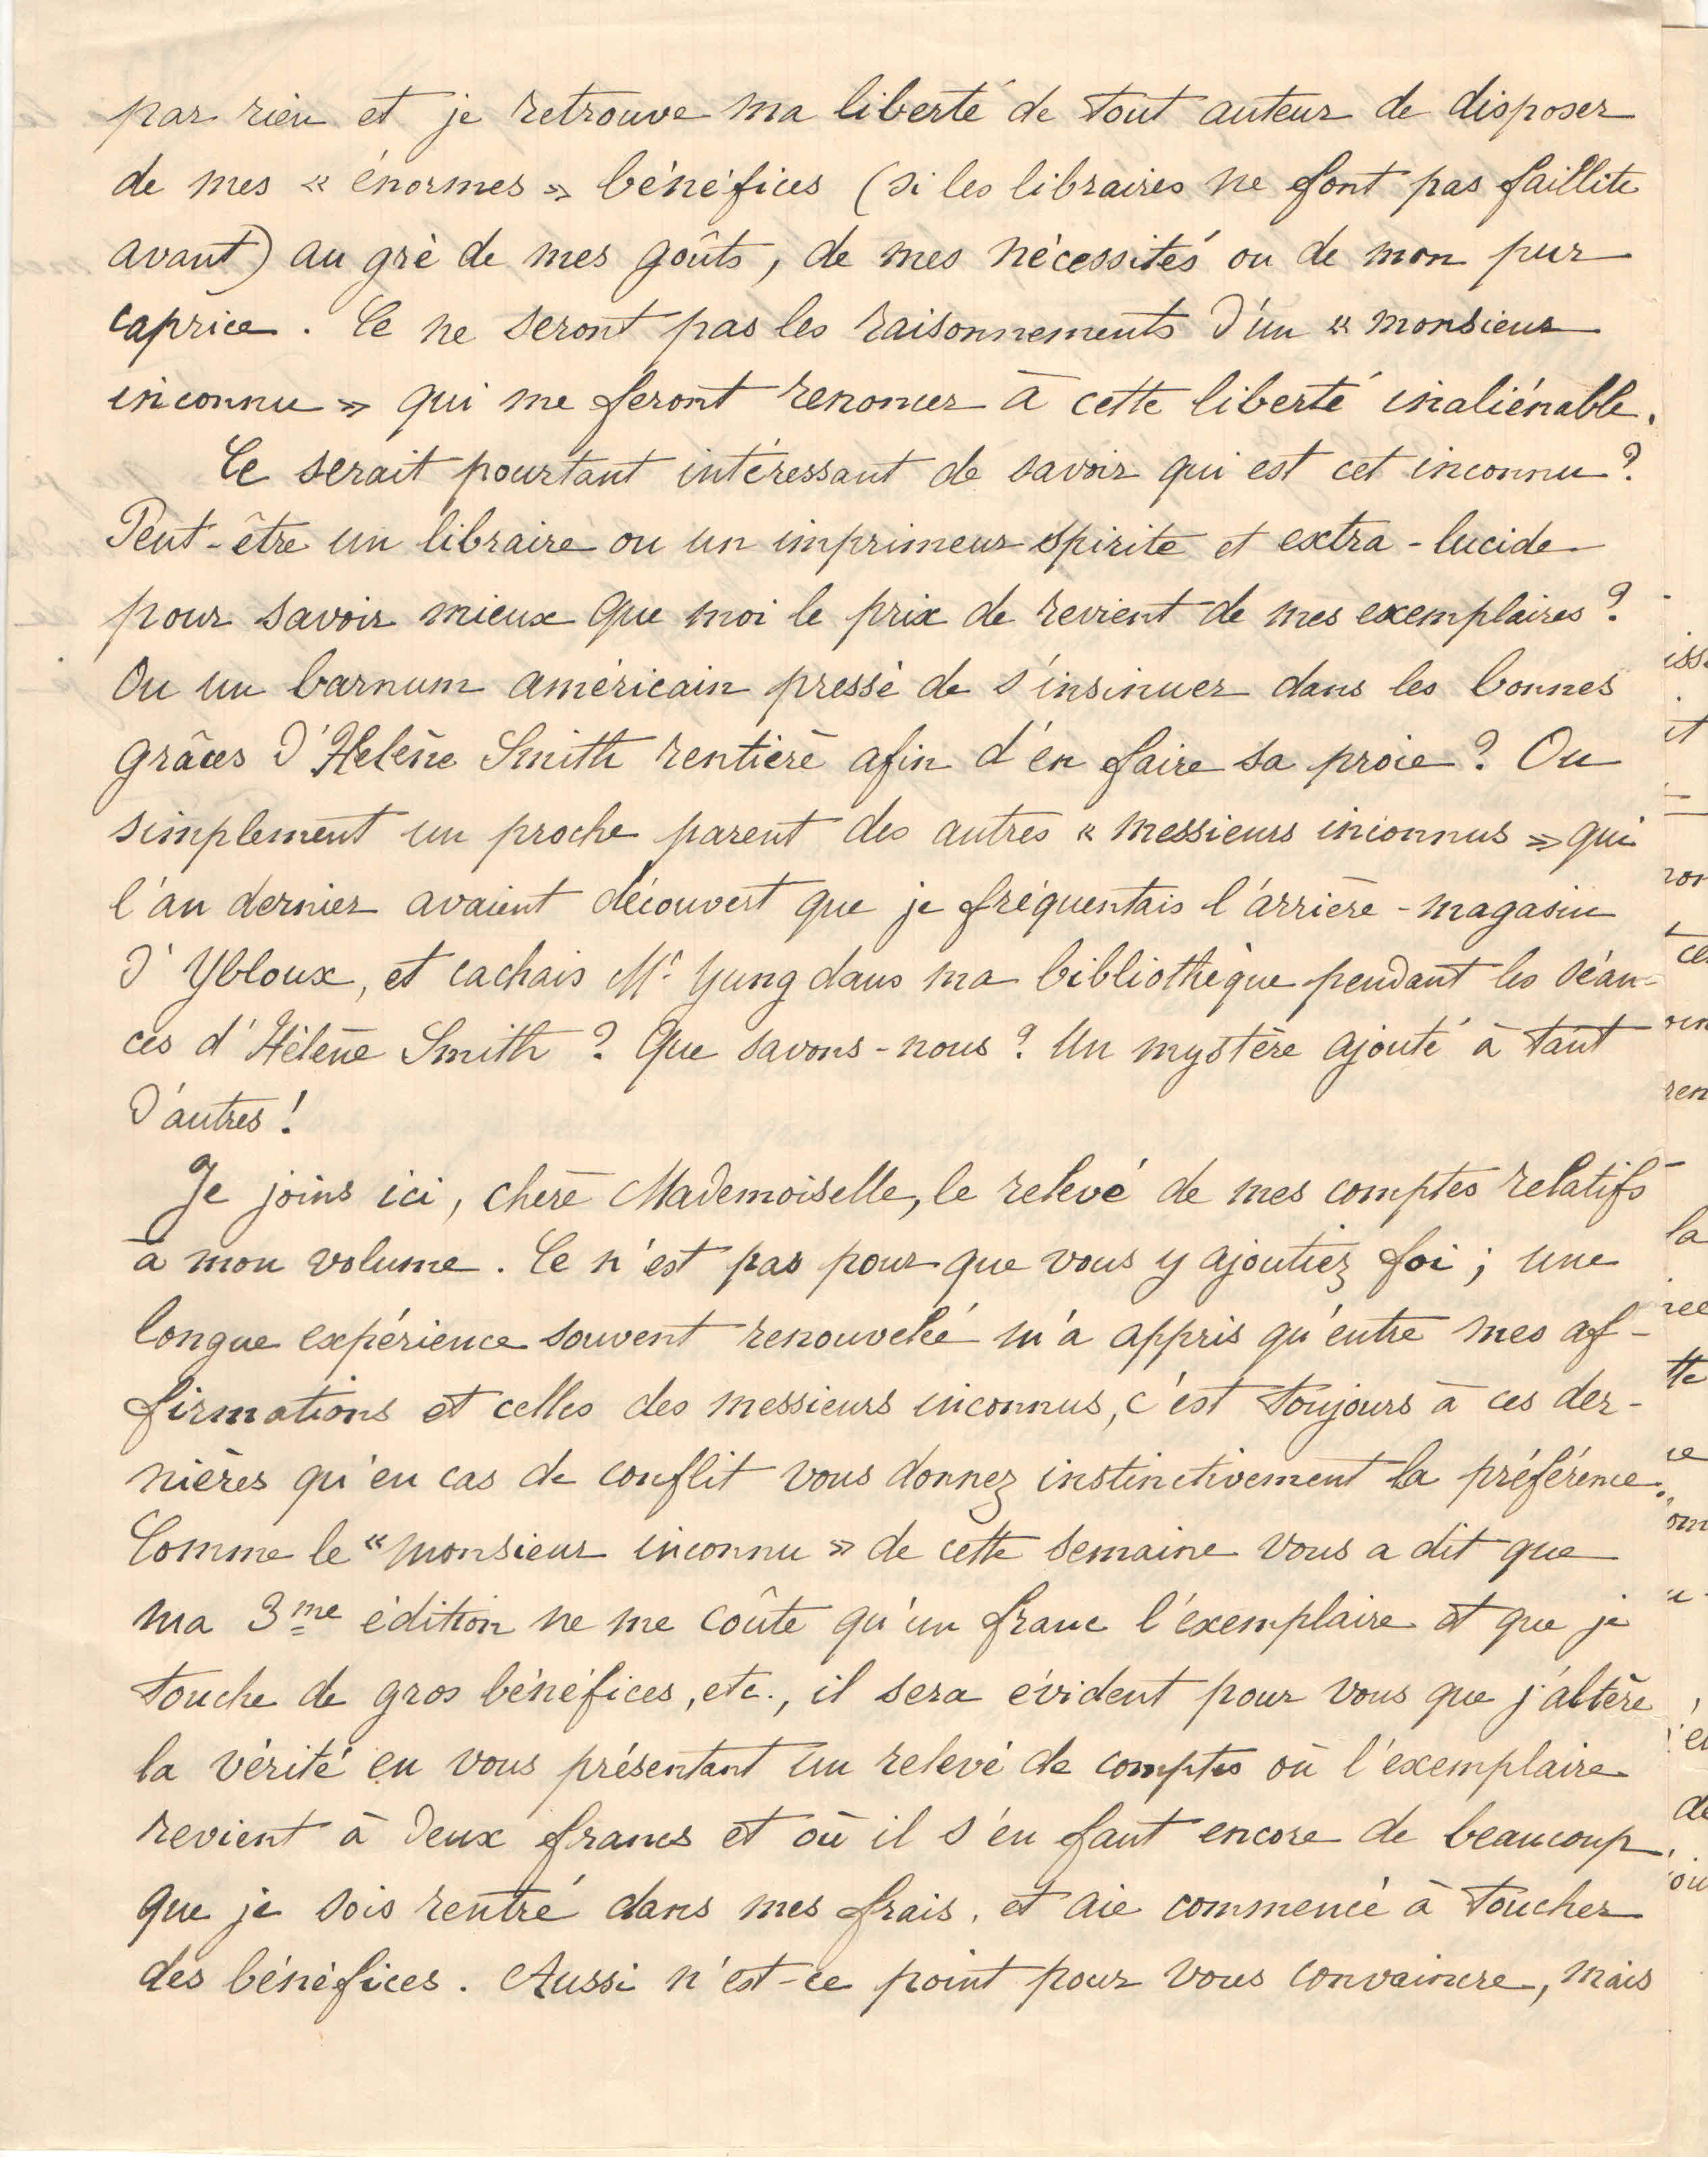 par rien et je retrouve ma liberté de tout auteur de disposer
de mes « énormes » bénéfices (si les libraires ne font pas faillite
avant) au gré de mes goûts, de mes nécessités ou de mon pur
caprice. Ce ne seront pas les raisonnements d'un « monsieur
inconnu » qui me feront renoncer à cette liberté inaliénable.
Ce serait pourtant intéressant de savoir qui est cet inconnu ?
Peut-être un libraire ou un imprimeur spirite et extra-lucide
pour savoir mieux que moi le prix de revient de mes exemplaires ?
Ou un barnum américain pressé de s'insinuer dans les bonnes
grâces d'Hélène Smith rentière afin d'en faire sa proie ? Ou
simplement un proche parent des autres « messieurs inconnus » qui
l'an dernier avaient découvert que je fréquentais l'arrière-magasin
d'Ybloux, et cachais Mr Yung dans ma bibliothèque pendant les séan-
ces d'Hélène Smith ? Que savons-nous ? Un mystère ajouté à tant
d'autres !
Je joins ici, chère Mademoiselle, le relevé de mes comptes relatifs
à mon volume. Ce n'est pas pour que vous y ajoutiez foi ; une
longue expérience souvent renouvelée m'a appris qu'entre mes af-
firmations et celles des messieurs inconnus, c'est toujours à ces der-
nières qu'en cas de conflit vous donnez instinctivement la préférence.
Comme le « monsieur inconnu » de cette semaine vous a dit que
ma 3me édition ne me coûte qu'un franc l'exemplaire et que je
touche de gros bénéfices, etc., il sera évident pour vous que j'altère
la vérité en vous présentant un relevé de comptes où l'exemplaire
revient à deux francs et où il s'en faut encore de beaucoup
que je sois rentré dans mes frais, et aie commencé à toucher
des bénéfices. Aussi n'est-ce point pour vous convaincre, mais